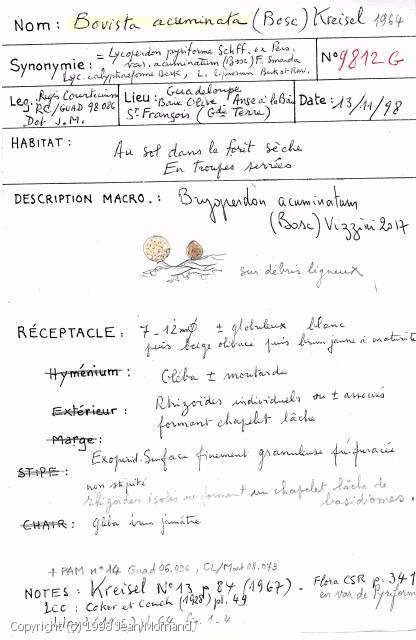 Nom: Bovista acuminata (Bosc) Kreisel 1964
Synonymie: = Lycoperdon pyriforme Schff. ex Pers.
var. acuminatum (Bosc) F. Smarda
Lyc. calyptraeforme Berk, L. leprosum Berk et Rav.
N° 9812 G
Leg: Régis Courtecuisse
RC/GUAD 98086
Det J.M.
Lieu: Guadeloupe
Baie Olive, Anse à la
St François (Gde Terre)
Date: 13/11/98
HABITAT: Au sol dans la forêt sèche
En troupes serrées
DESCRIPTION MACRO.: Bryoperdon acuminatum
(Bosc) Vizzini 2017
sur débris ligneux
RÉCEPTACLE: 7-12mm Ø ± globuleux blanc
puis beige olivacé puis brun jaune à maturité
Hyménium: Gléba ± moutarde
Extérieur: Rhizoïdes individuels ou ± associés
formant chapelet lâche
Marge:
Exopérid. Surface finement granuleuse furfuracée
STIPE: non stipité
rhizoïdes isolés ou formant un chapelet lâche de
basidiomes.
CHAIR: gléba brun jaunâtre
+ PAM n°14 Guad 06.096, CL/Mart 08.073
NOTES: Kreisel N°13 p 84 (1967) - Flora CSR p. 341
en var de Pyriform
ICC: Coker et Couch (1928) pl. 49
Copyright (c) 1998 Jean Mornand
p. 64 fig. 1-4